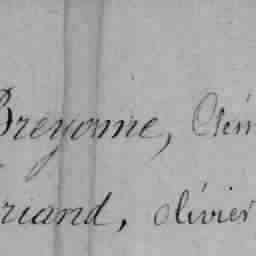 Breyanne, Clém
riand, olivier